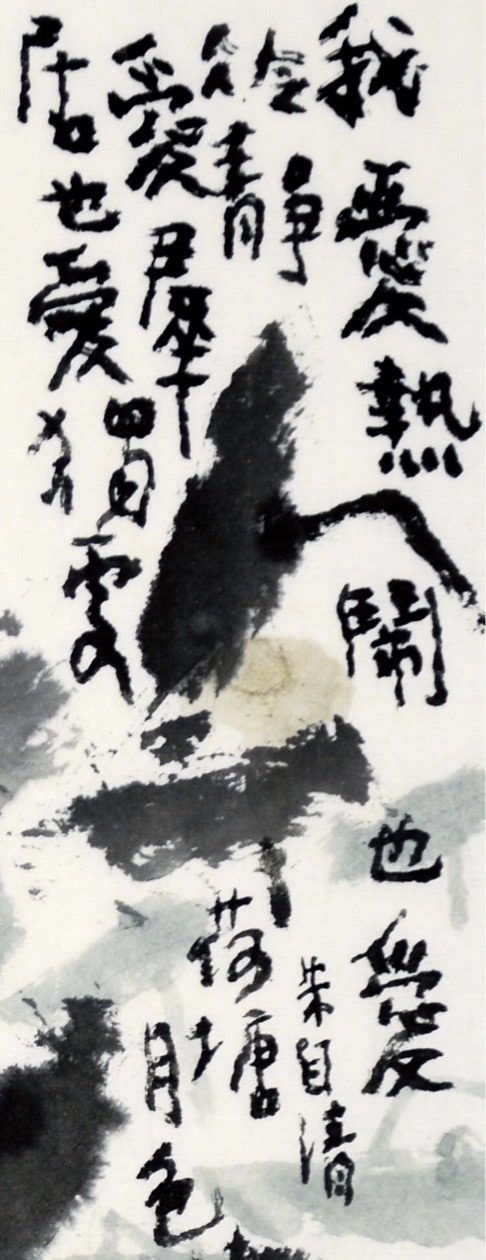 我愛熱鬧也愛
冷靜
愛羣
居也愛獨處
朱自清
荷塘
月色